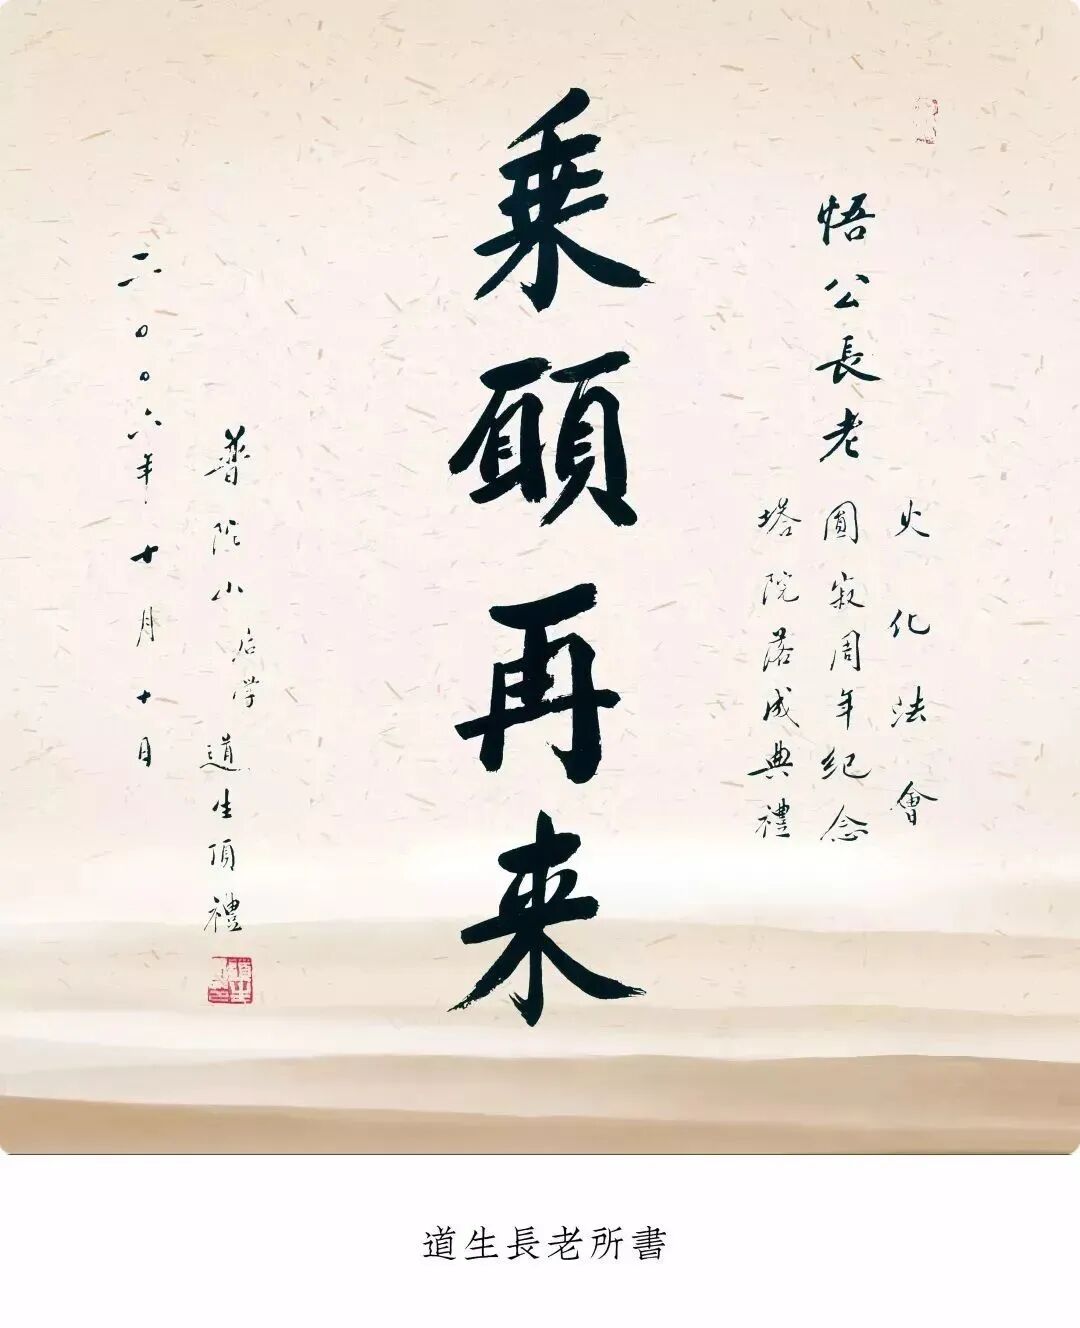 悟公長老
火化法會
圓寂周年紀念
塔院落成典禮
乘願再来
普陀小后学道生頂禮
二〇〇六年十月十日
道生長老所書